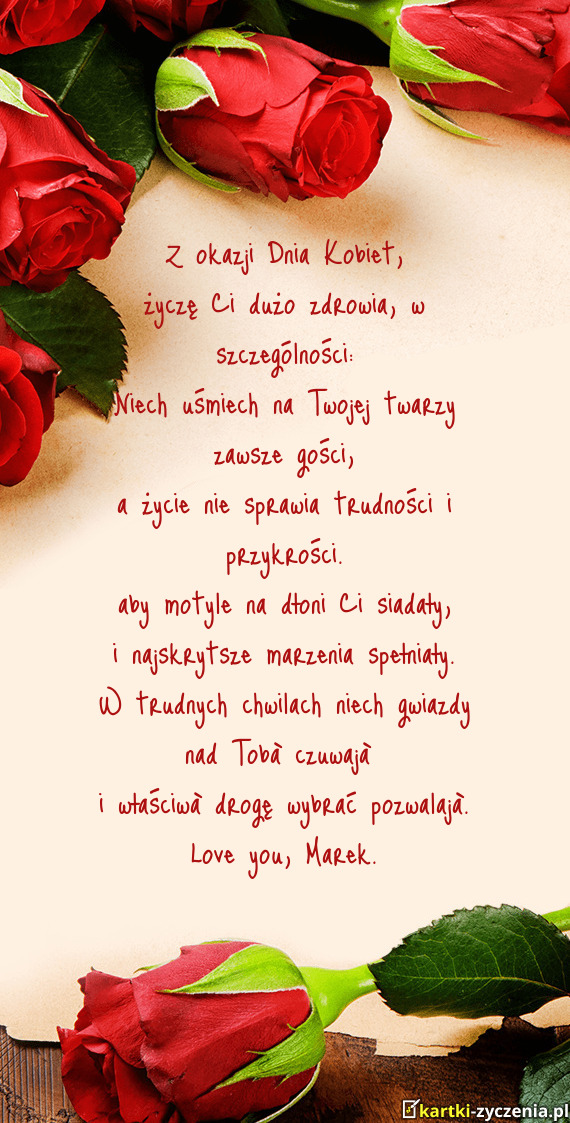 Z okazji Dnia Kobiet,
życzę Ci dużo zdrowia, w
szczególności:
Niech uśmiech na Twojej twarzy
zawsze gości,
a życie nie sprawia trudności i
przykrości.
aby motyle na dłoni Ci siadały,
i najskrytsze marzenia spełniały.
W trudnych chwilach niech gwiazdy
nad Tobà czuwajà
i właściwà drogę wybrać pozwalajà.
Love you, Marek.
kartki-zyczenia.pl